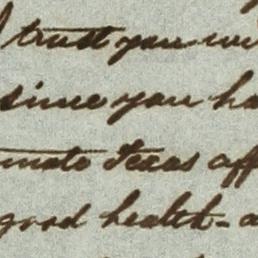 I trust you wi
since you ha
mate Texas aff
good health - a